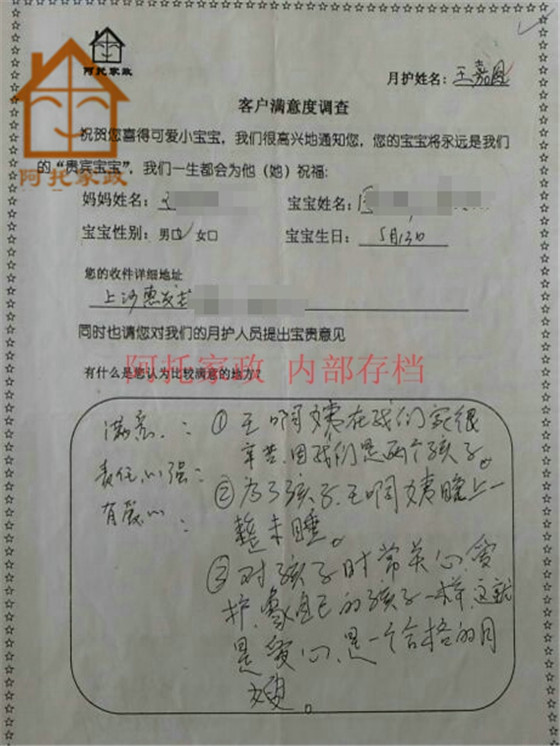 阿托家政
月护姓名：王嘉恩
客户满意度调查
祝贺您喜得可爱小宝宝，我们很高兴地通知您，您的宝宝将永远是我们
的“贵宾宝宝”，我们一生都会为他（她）祝福：
阿托家政
妈妈姓名：
宝宝姓名：
宝宝性别：男口✓女口
宝宝生日：5月13日
您的收件详细地址
上沙惠
同时也请您对我们的月护人员提出宝贵意见
阿托家政 内部存档
有什么是您认为比较满意的地方？
满意：①王啊姨在我们家很
辛苦，因我们是两个孩子。
责任心强：
②为了孩子，王啊姨晚上一
有爱心：
整未睡。
③对孩子时常关心，爱
护，象自己的孩子一样，这就
是爱心，是一个合格的月
嫂。